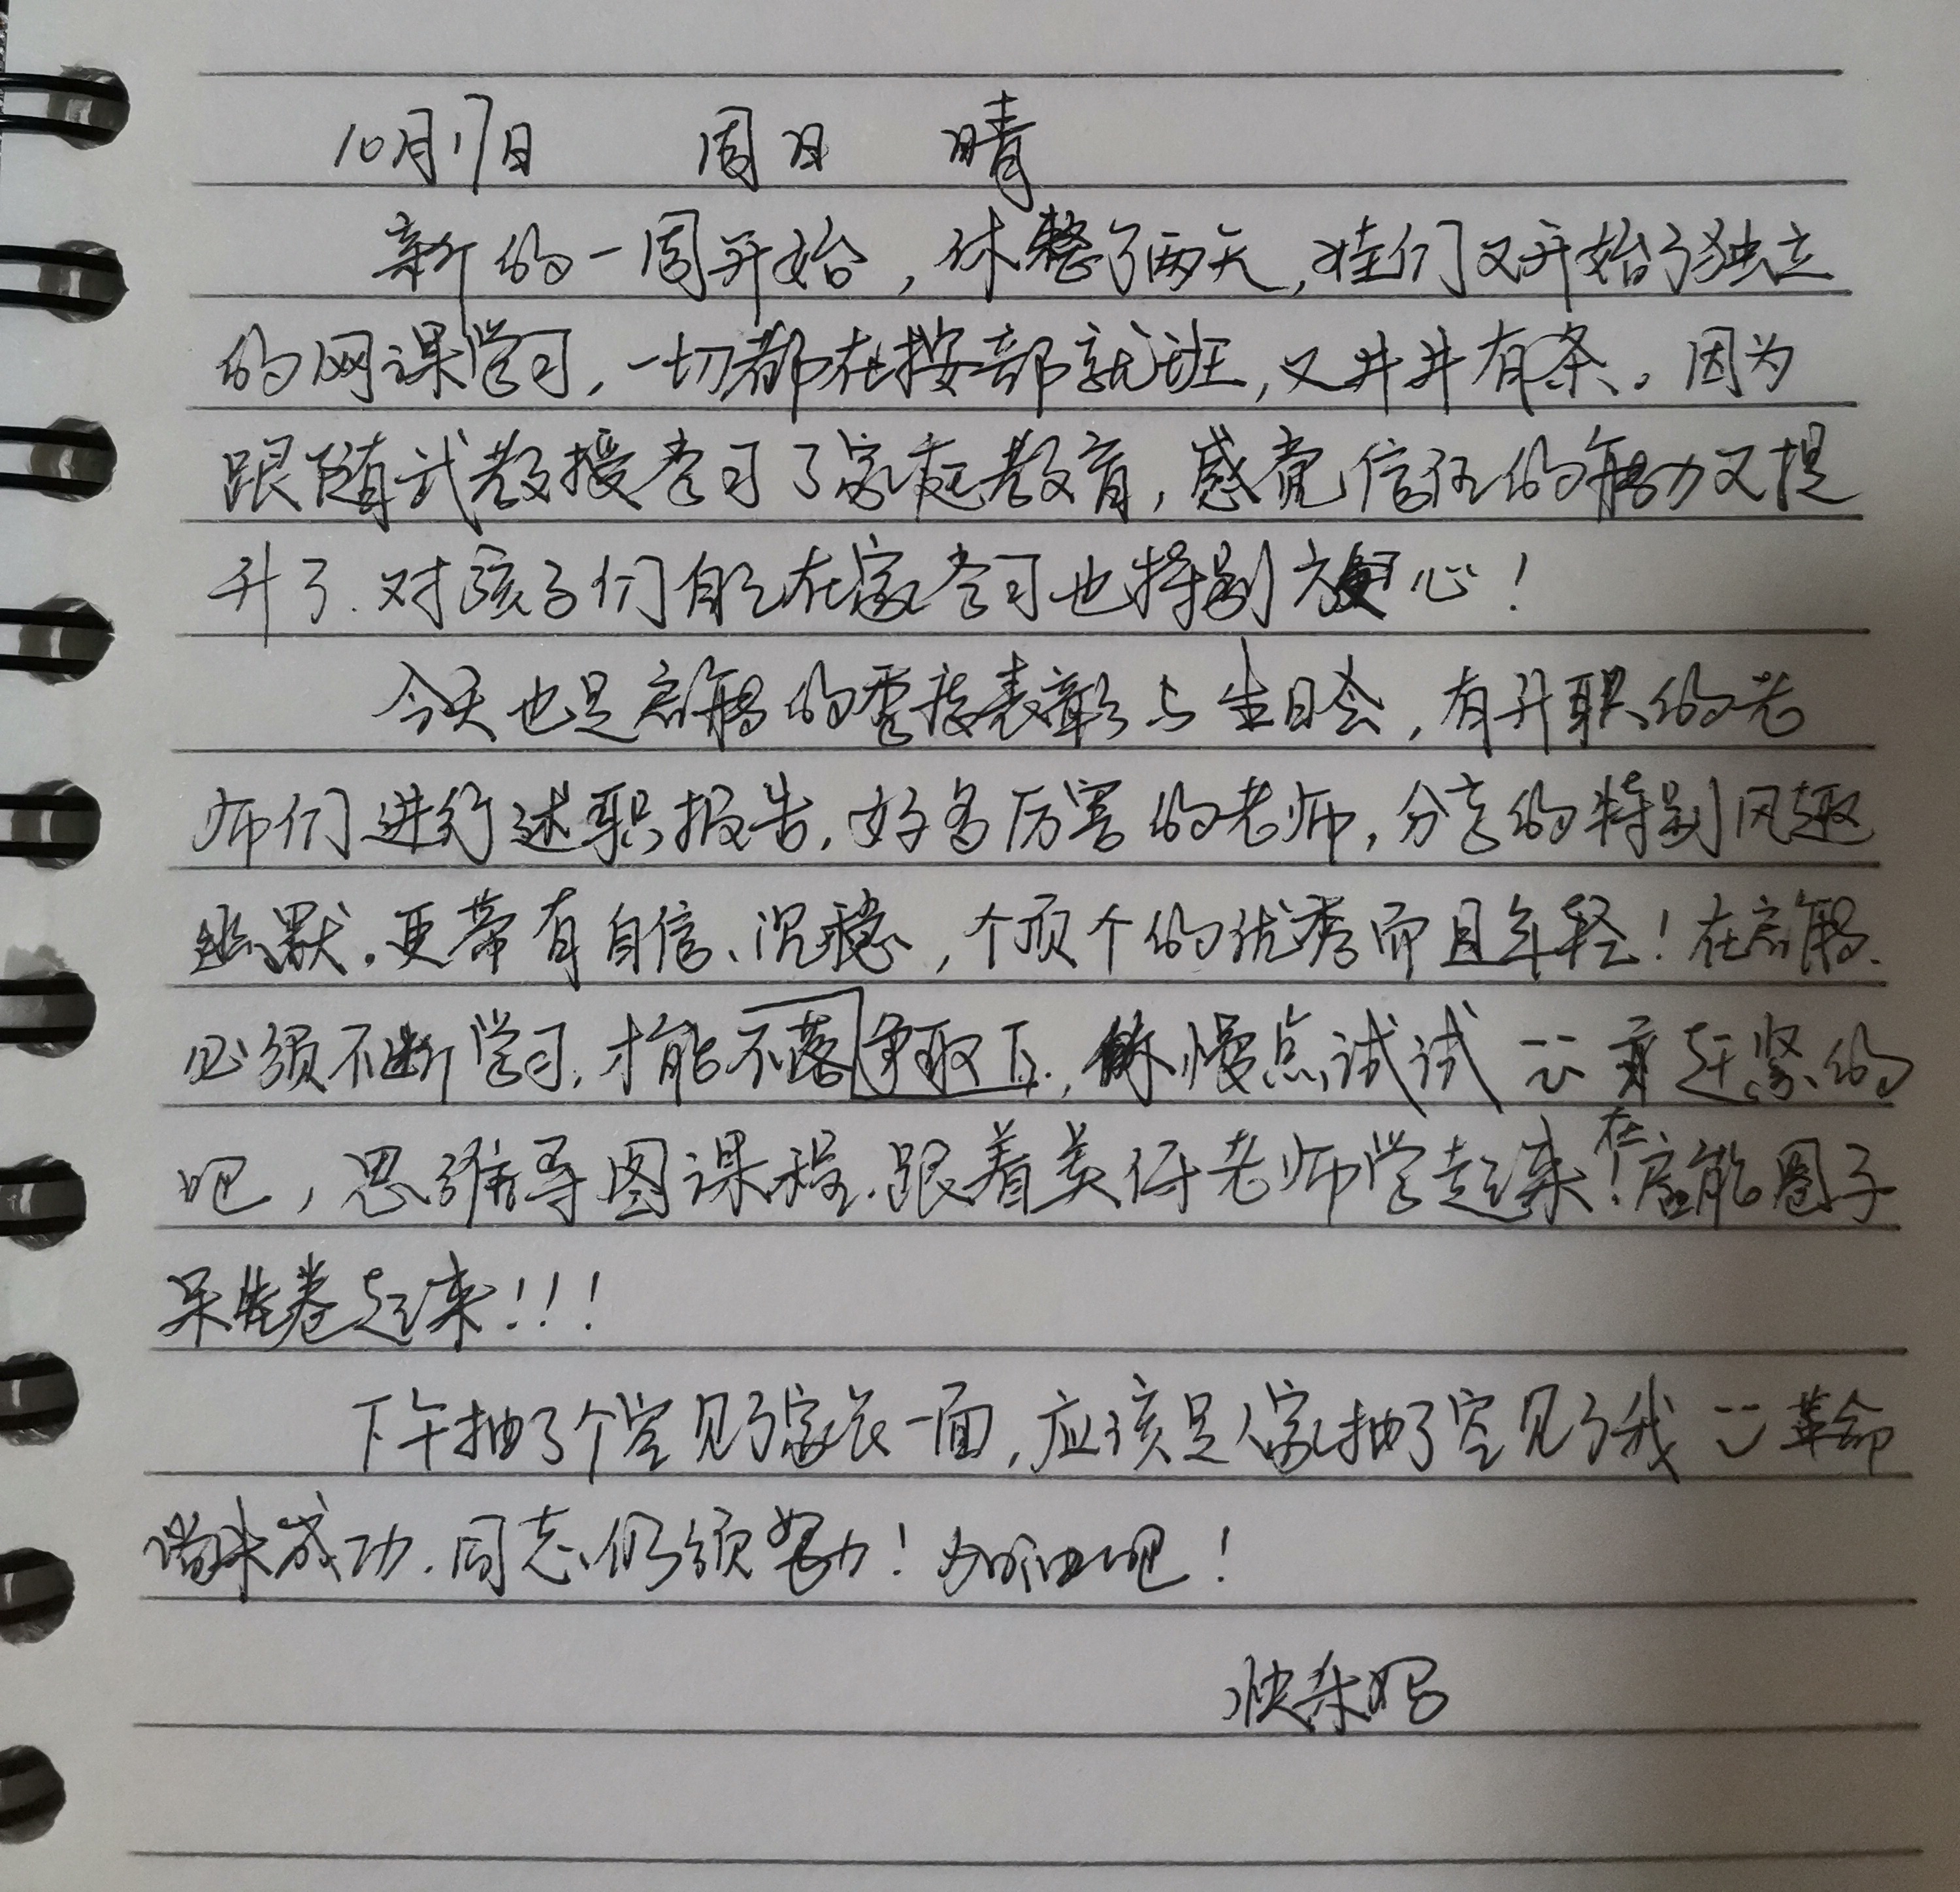 10月17日 周日 晴
新的一周开始，休整了两天，娃们又开始了独立
的网课学习，一切都在按部就班，又井井有条。因为
跟随武教授学习了家庭教育，感觉信任的能力又提
升了.对孩子们自己在家学习也特别放心！
今天也是启能的季度表彰与生日会，有升职的老
师们进行述职报告，好多厉害的老师，分享的特别风趣
幽默.更带有自信、沉稳，个顶个的优秀而且年轻！在启能.
必须不断学习，才能不落下，慢点试试 赶紧的
吧，思维导图课程.跟着美伢老师学起来！在启能圈子
卷起来！！！
下午抽了个空见了家长一面，应该是人家抽了空见了我 革命
尚未成功.同志仍须努力！加油吧！
快乐妈